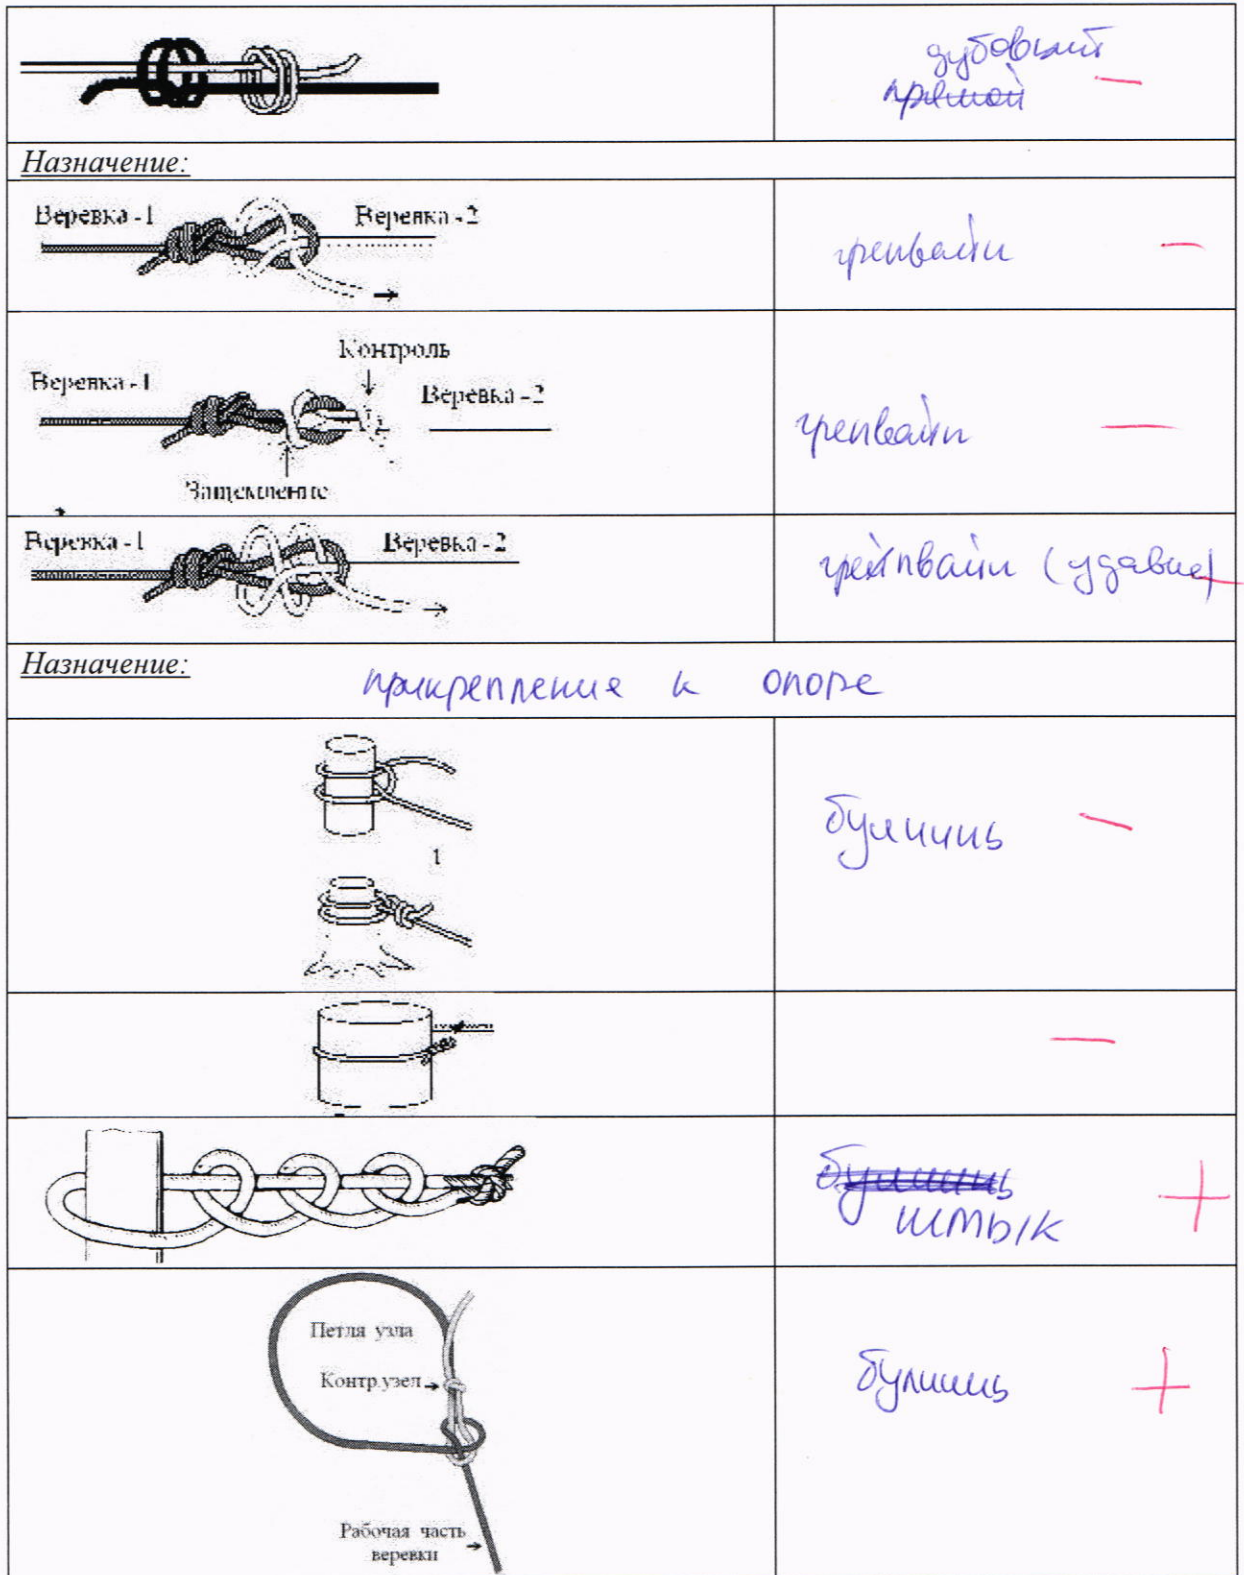 дубовый
прямой
Назначение:
Веревка -1
Веревка -2
грепвайн
Контроль
Веревка -1
Веревка -2
грепвайн
Защемление
Веревка -1
Веревка -2
грейпвайн (удавка)
Назначение:
прикрепление к опоре
булинь
1
штык
Петля узла
Контр.узел
булинь
Рабочая часть
веревки